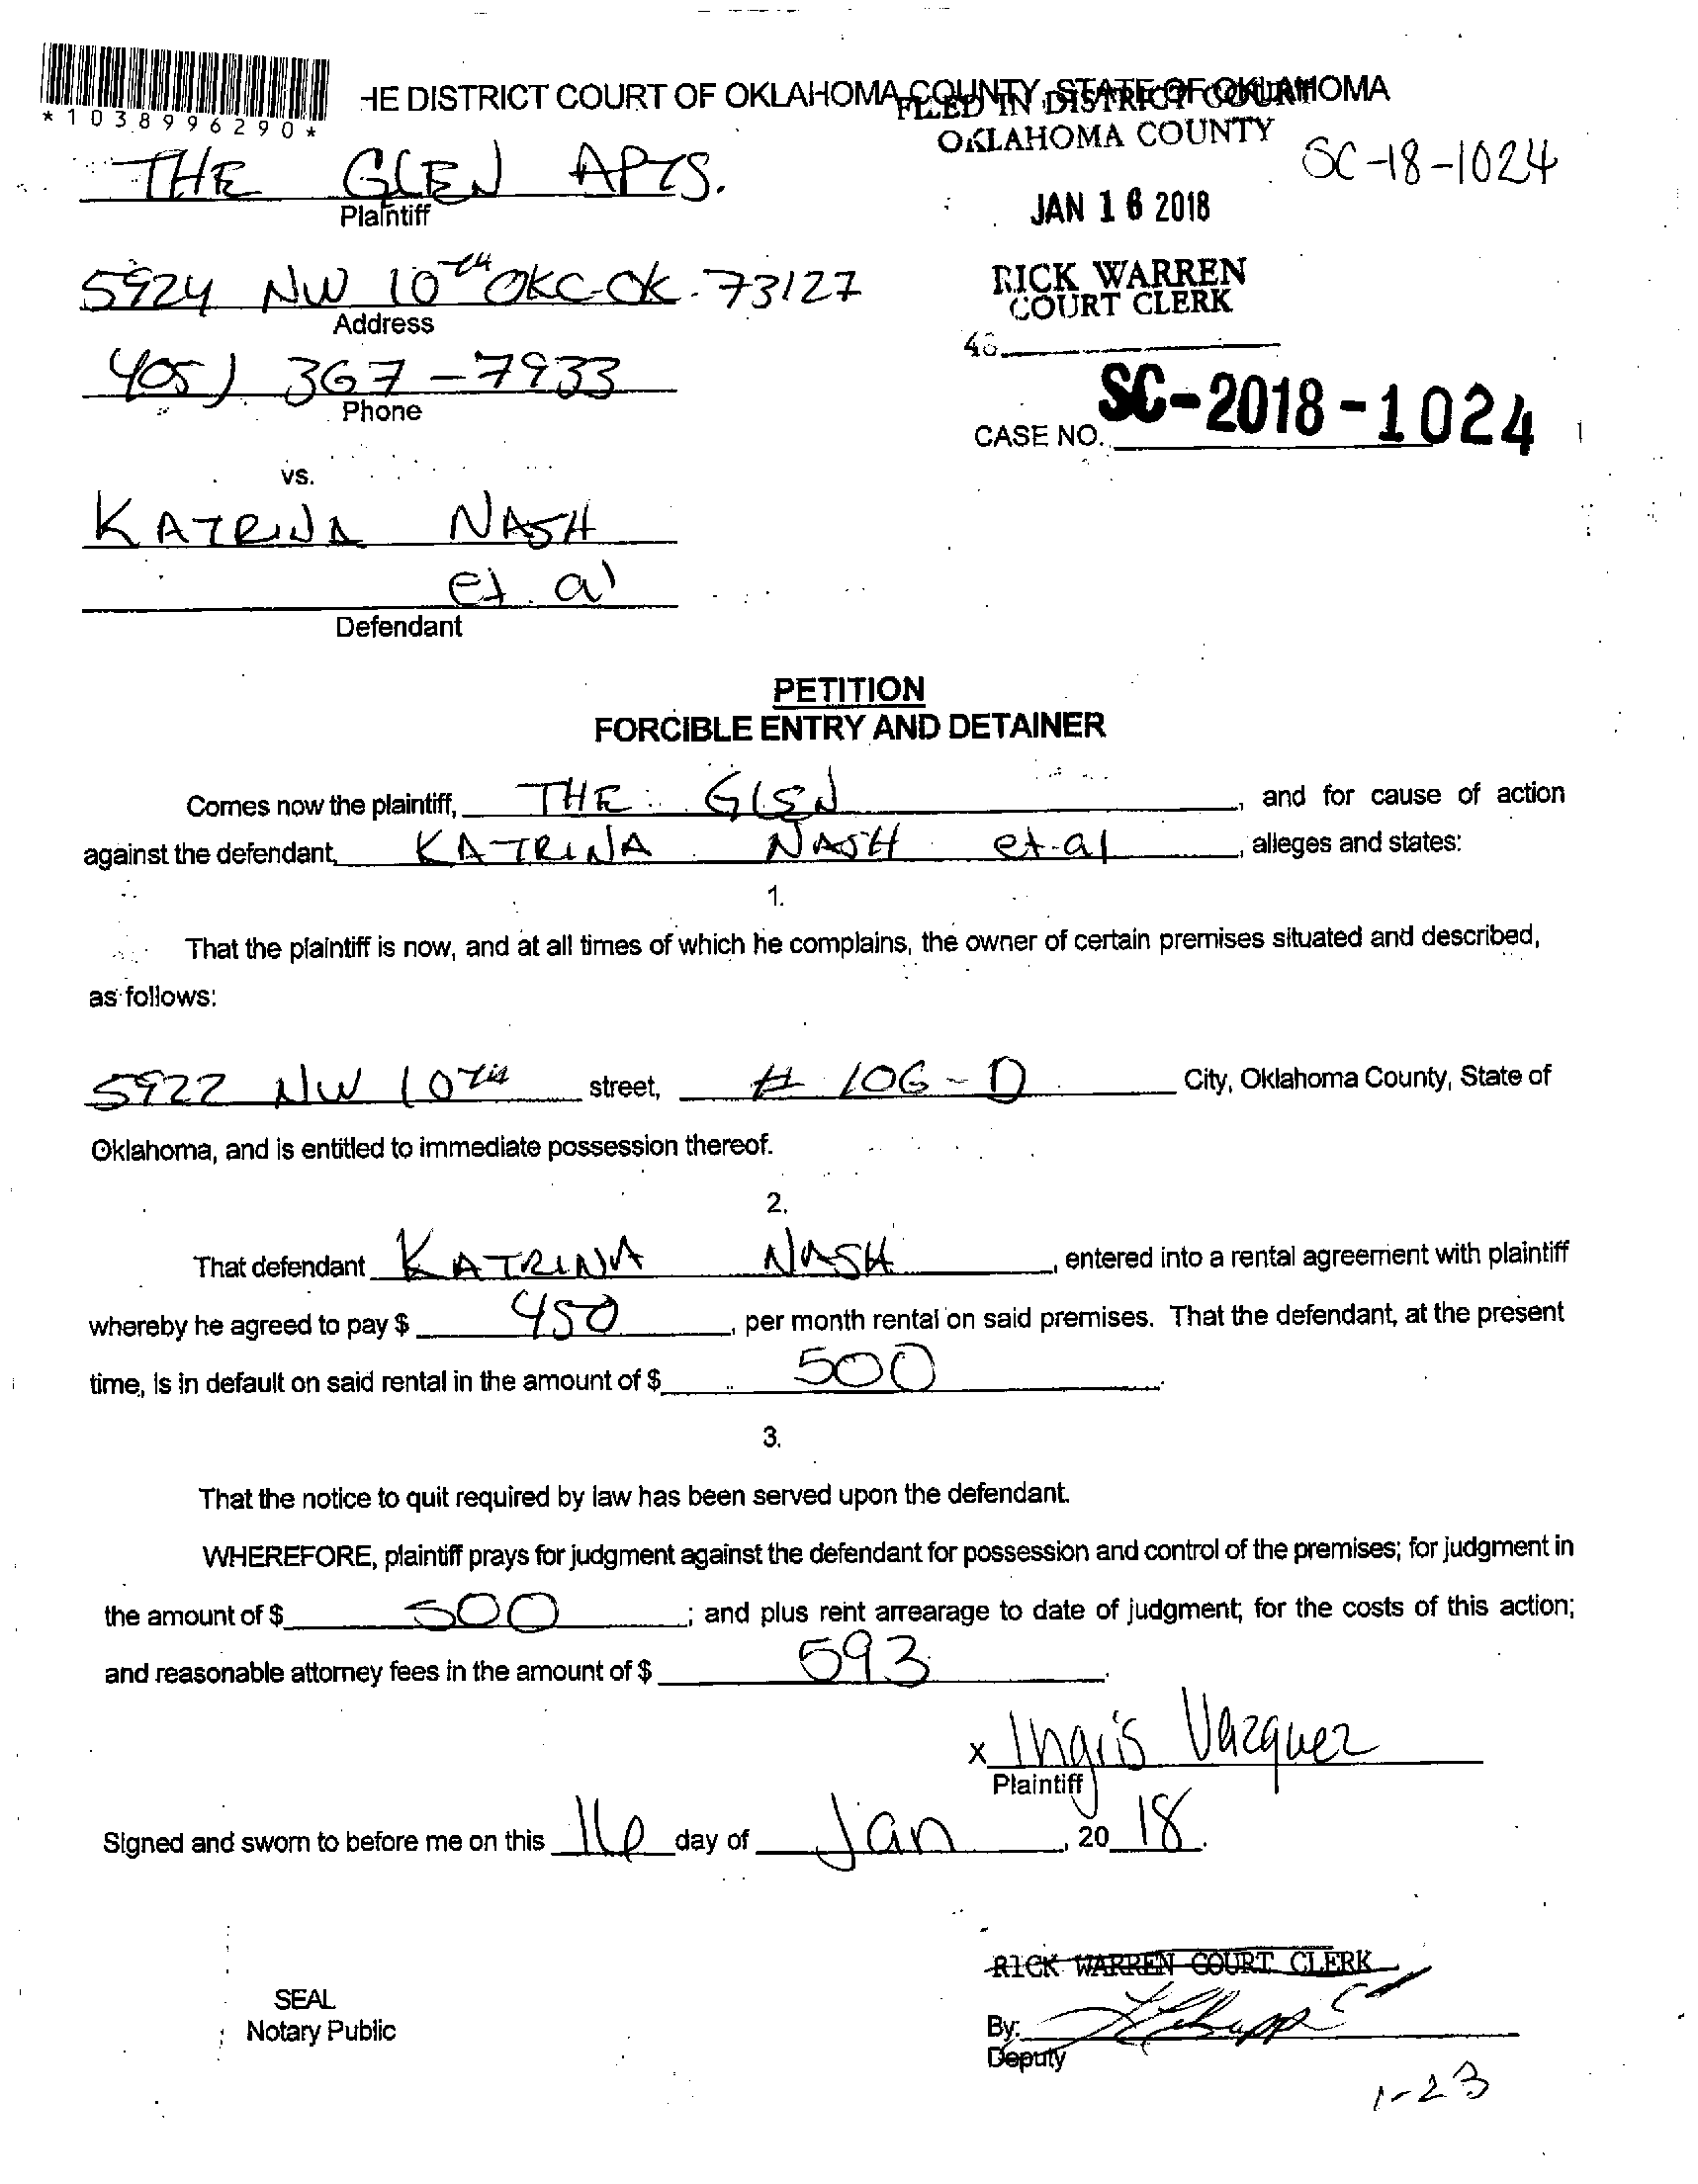 *1038996290*
HE DISTRICT COURT OF OKLAHOMA COUNTY, STATE OF OKLAHOMA
FILED IN DISTRICT COURT
OKLAHOMA COUNTY
SC-18-1024
THE GLEN APTS.
Plaintiff
JAN 16 2018
5924 NW 10TH OKC-OK-73127
Address
RICK WARREN
COURT CLERK
405) 367-7933
Phone
CASE NO. SC-2018-1024
vs.
KATRINA NASH
et. al
Defendant
PETITION
FORCIBLE ENTRY AND DETAINER
Comes now the plaintiff, THE GLEN, and for cause of action
against the defendant, KATRINA NASH et-al, alleges and states:
1.
That the plaintiff is now, and at all times of which he complains, the owner of certain premises situated and described,
as follows:
5922 NW 10TH street, # 106-D City, Oklahoma County, State of
Oklahoma, and is entitled to immediate possession thereof.
2.
That defendant KATRINA NASH, entered into a rental agreement with plaintiff
whereby he agreed to pay $ 450, per month rental on said premises. That the defendant, at the present
time, is in default on said rental in the amount of $ 500.
3.
That the notice to quit required by law has been served upon the defendant.
WHEREFORE, plaintiff prays for judgment against the defendant for possession and control of the premises; for judgment in
the amount of $ 500; and plus rent arrearage to date of judgment; for the costs of this action;
and reasonable attorney fees in the amount of $ 593.
x Ingris Vazquez
Plaintiff
Signed and sworn to before me on this 16 day of Jan, 20 18.
RICK WARREN COURT CLERK
SEAL
Notary Public
By:
Deputy
1-23